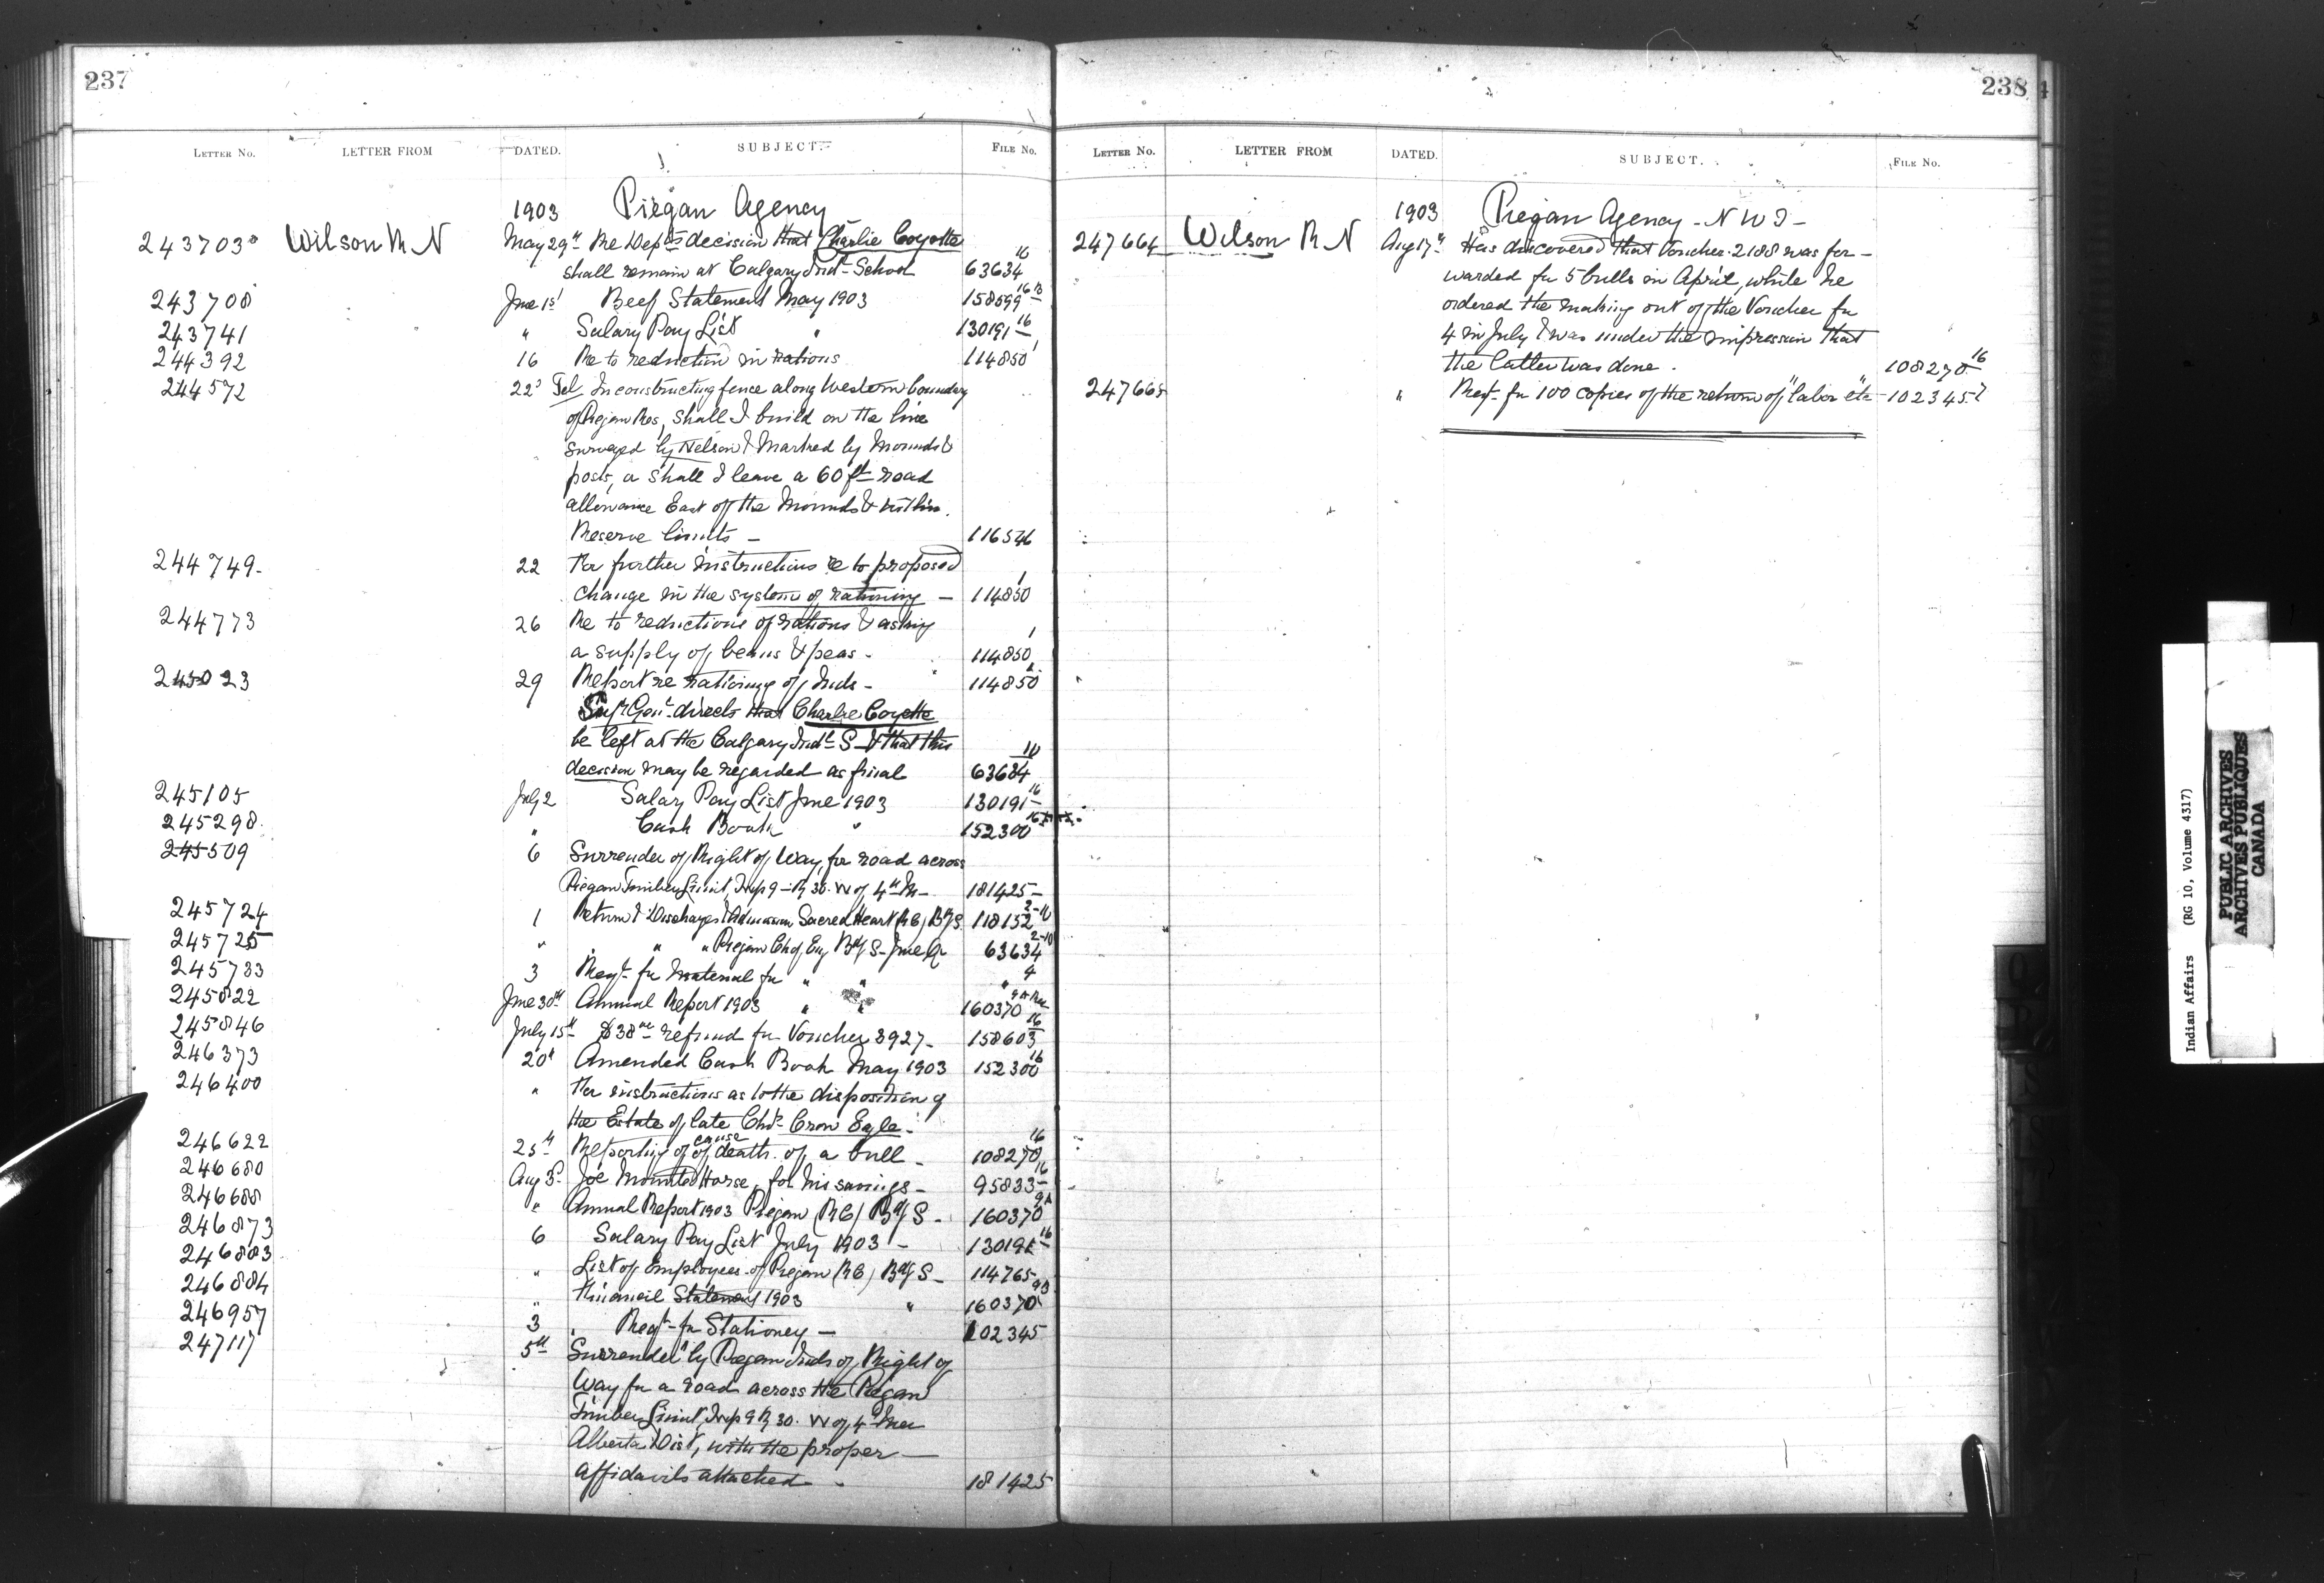 237
LETTER NO. LETTER FROM DATED. SUBJECT. FILE NO.
1903 Piegan Agency
243703 Wilson R N May 29th Re Dept's decision that Charlie Coyotte
shall remain at Calgary Indl School 63634 16
243708 June 1st Beef Statement May 1903 158599 16
243741 " Salary Pay List " 130191 16
244392 16 Re to reduction in rations 114850 1
244572 22d Tel In constructing fence along Western boundary
of Piegan Res, shall I build on the line
surveyed by Nelson & marked by mounds &
posts, or shall I leave a 60 ft road
allowance East of the mounds & within
Reserve limits — 116546
244749 22 For further instructions re to proposed
change in the system of rationing — 114850 1
244773 26 Re to reductions of rations & asking
a supply of beans & peas - 114850 1
245023 29 Report re rationing of Inds - 114850
Supt Genl directs that Charlie Coyotte
be left at the Calgary Indl S & that this
decision may be regarded as final 63634
245105 July 2 Salary Pay List June 1903 130191 16
245298 " Cash Book " 152300 16
245509 6 Surrender of Right of Way for road across
Piegan Timber Limit, Twp 9 - R 30. W of 4th M - 181425
245724 1 Return of Discharges & Admission Sacred Heart (RC) Bdg S. 118152
245725 " " " Piegan Ch of Eng Bdg S - June Qr 63634
245733 3 Reqt for material for " " " 4
245822 June 30th Annual Report 1903 " " 160370
245846 July 15th $38 refund for Voucher 3927 - 158603 16
246373 20th Amended Cash Book May 1903 152300 16
246400 " For instructions as to the disposition of
the Estate of late Chf Crow Eagle.
246622 25th Reporting of cause of death of a bull - 108270 16
246680 Aug 3d Joe Mounted Horse, for his savings - 95833 16
246688 " Annual Report 1903 Piegan (RC) Bdg S - 160370 9A
246873 6 Salary Pay List July 1903 - 130191 16
246883 " List of Employees of Piegan (RC) Bdg S - 114765
246884 " Financial Statement 1903 " 160370
246957 3 Reqt for Stationery — 102345
247117 5th Surrender by Piegan Inds of Right of
Way for a road across the Piegan
Timber Limit, Twp 9 R 30. W of 4 Mer
Alberta Dist, with the proper —
affidavits attached - 181425
238
LETTER NO. LETTER FROM DATED. SUBJECT. FILE NO.
1903 Piegan Agency - N W T -
247664 Wilson R N Aug 17th Has discovered that Voucher 2188 was for-
warded for 5 bulls in April, while he
ordered the making out of the Voucher for
4 in July & was under the impression that
the latter was done. 108270 16
247665 " Reqt for 100 copies of the return of "labor etc" - 102345
Indian Affairs (RG 10, Volume 4317)
PUBLIC ARCHIVES
ARCHIVES PUBLIQUES
CANADA